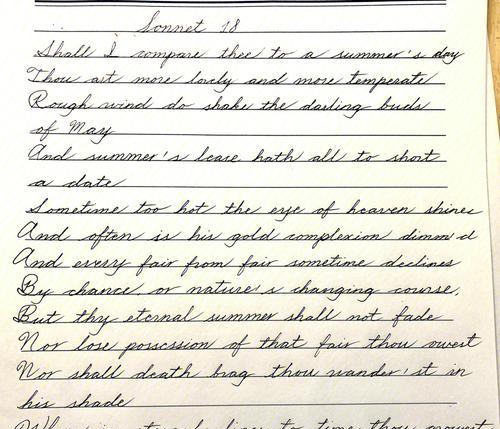 Sonnet 18
Shall I compare thee to a summer's day
Thou art more lovely and more temperate
Rough wind do shake the darling buds
of May
And summer's lease hath all to short
a date
Sometime too hot the eye of heaven shines
And often is his gold complexion dimm'd
And every fair from fair sometime declines
By chance, or nature's changing course,
But thy eternal summer shall not fade
Nor lose possession of that fair thou owest
Nor shall death brag thou wander'st in
his shade
When in eternal lines to time thou growest